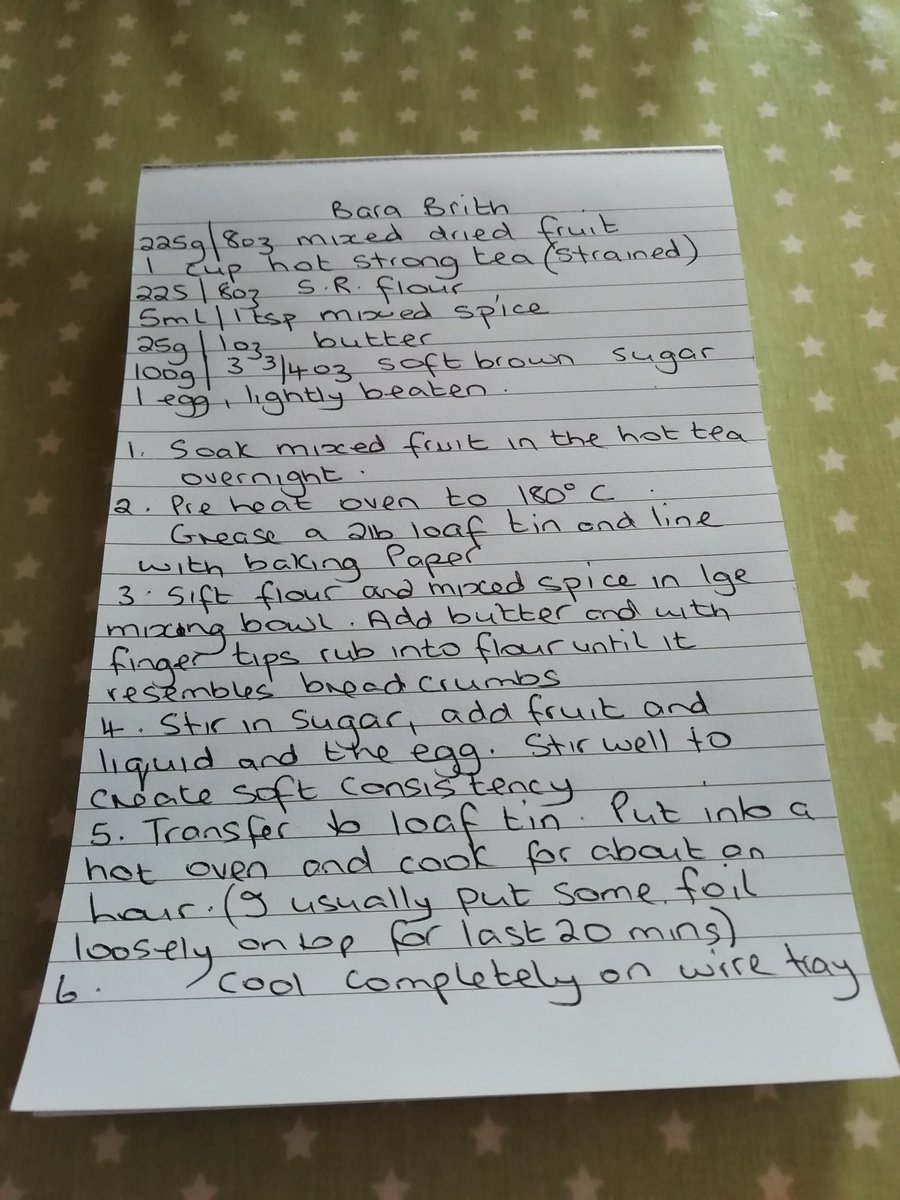 Bara Brith
225g/8oz mixed dried fruit
1 cup hot strong tea (strained)
225/8oz S.R. flour
5ml/1tsp mixed spice
25g/1oz butter
100g/3 3/4oz soft brown sugar
1 egg, lightly beaten.
1. Soak mixed fruit in the hot tea
overnight.
2. Pre heat oven to 180° C.
Grease a 2lb loaf tin and line
with baking Paper
3. Sift flour and mixed spice in lge
mixing bowl. Add butter and with
finger tips rub into flour until it
resembles bread crumbs
4. Stir in sugar, add fruit and
liquid and the egg. Stir well to
create soft consistency
5. Transfer to loaf tin. Put into a
hot oven and cook for about an
hour. (I usually put some foil
loosely on top for last 20 mins)
6. Cool completely on wire tray